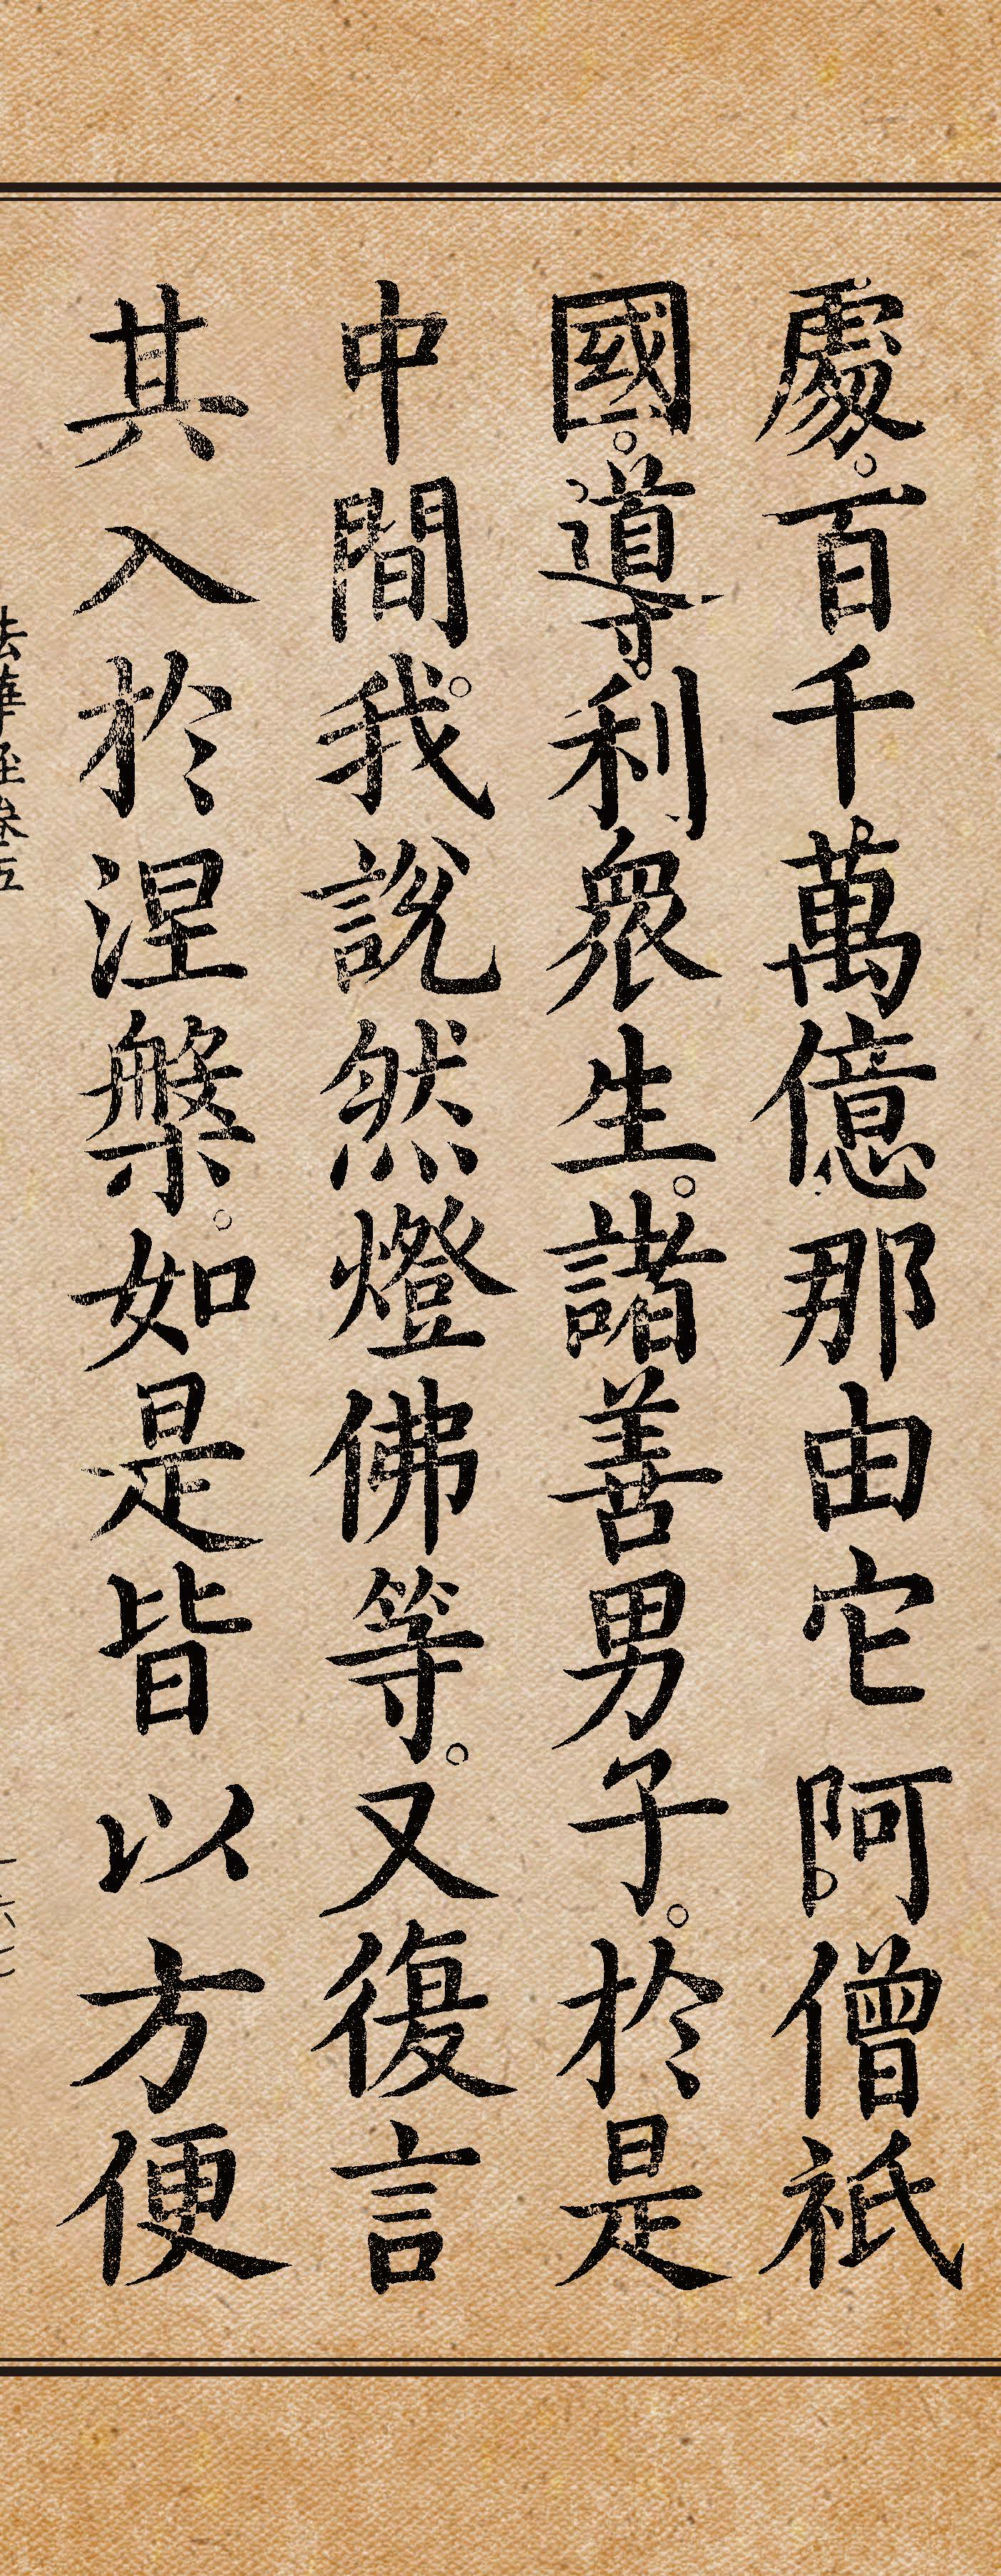 處。百千萬億那由它阿僧祇
國。導利眾生。諸善男子。於是
中間。我說然燈佛等。又復言
其入於涅槃。如是皆以方便
法華經卷五